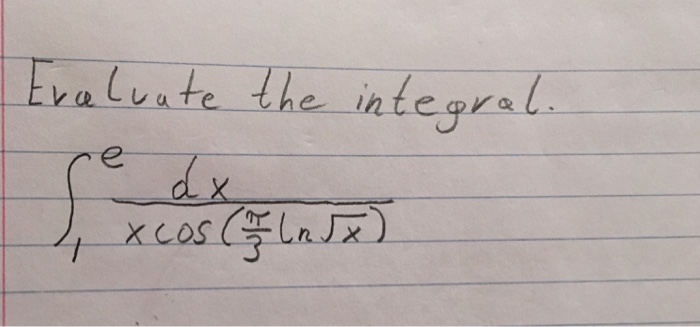 Evaluate the integral.
∫₁ᵉ dx / (x cos(π/3 ln √x))